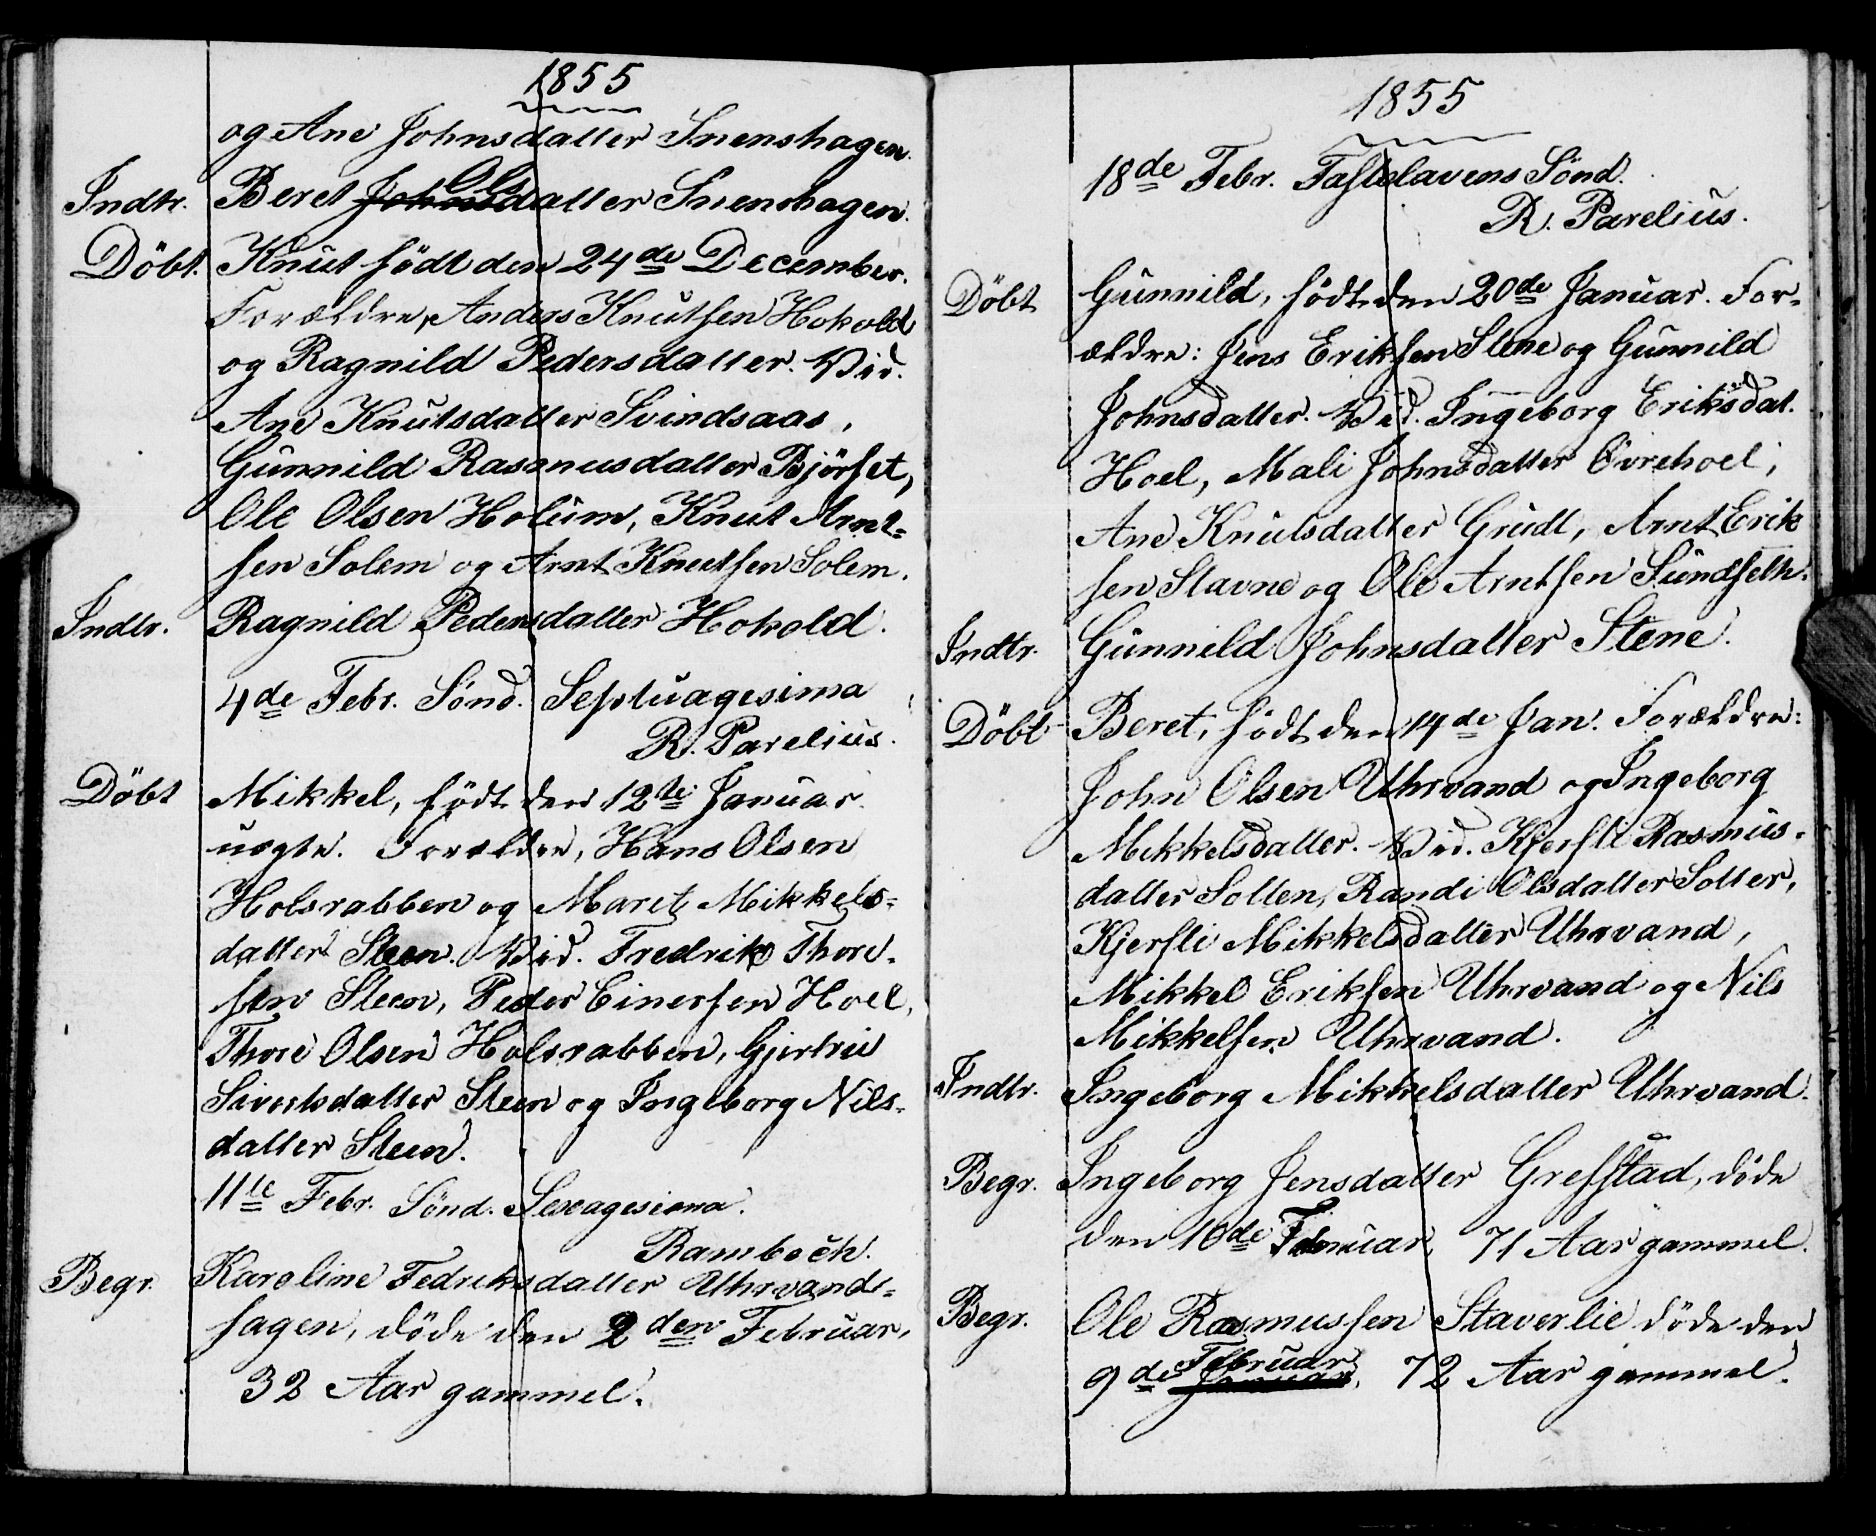 1855
og Ane Johnsdatter Snenshagen.
Indtr. Beret Olsdatter Snenshagen.
Döbt. Knut födt den 24de December.
Forældre, Anders Knutsen Hokold
og Ragnild Pedersdatter. Vid.
Ane Knutsdatter Svindsaas,
Gunnild Rasmusdatter Bjørset,
Ole Olsen Holum, Knut Arnt-
sen Solem og Arnt Knutsen Solem.
Indtr. Ragnild Pedersdatter Hokold.
4de Febr. Sönd. Septuagesima
R. Parelius.
Döbt Mikkel, födt den 12te Januar.
uægte. Forældre, Hans Olsen
Holsrabben og Maret Mikkels-
datter Steen. Vid. Fredrik Thore-
sen Steen, Peder Einersen Hoel,
Thore Olsen Holsrabben, Gjertrue
Sivertsdatter Steen og Ingeborg Nils-
datter Steen.
11te Febr. Sönd. Sexagesima.
Rambech.
Begr. Karoline Fedriksdatter Uhrvands-
hagen, döde den 2den Februar,
32 Aar gammel.
1855
18de Febr. Fastelavens Sönd.
R. Parelius.
Döbt Gunnild, födt den 20de Januar. For-
ældre: Jens Eriksen Stene og Gunnild
Johnsdatter. Vid. Ingeborg Eriksdat.
Hoel, Mali Johnsdatter Övrehoel,
Ane Knutsdatter Grudt, Arnt Erik
sen Stavne og Ole Arntsen Sundseth.
Indtr. Gunnild Johnsdatter Stene.
Döbt Beret, födt den 14de Jan. Forældre:
John Olsen Uhrvand og Ingeborg
Mikkelsdatter. Vid. Kjersti Rasmus-
datter Solten, Randi Olsdatter Solter,
Kjersti Mikkelsdatter Uhrvand,
Mikkel Eriksen Uhrvand og Nils
Mikkelsen Uhrvand.
Indtr. Ingeborg Mikkelsdatter Uhrvand.
Begr. Ingeborg Jensdatter Grefstad, döde
den 10de Februar, 71 Aar gammel.
Begr. Ole Rasmussen Staverlie döde den
9de Februar, 72 Aar gammel.